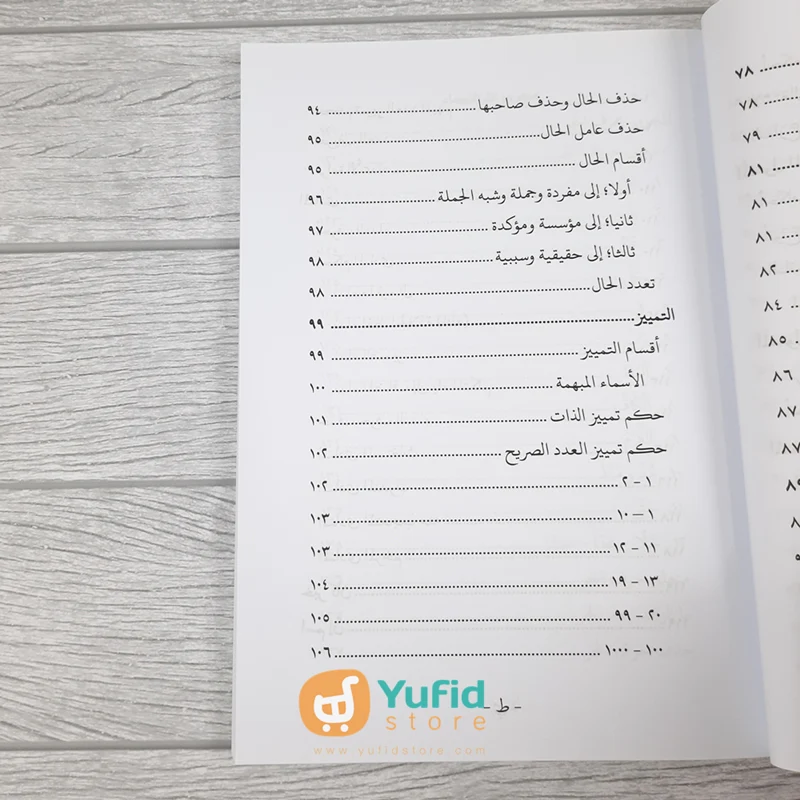 حذف الحال وحذف صاحبها ... ٩٤
حذف عامل الحال ... ٩٥
أقسام الحال ... ٩٥
أولا؛ إلى مفردة وجملة وشبه الجملة ... ٩٦
ثانيا؛ إلى مؤسسة ومؤكدة ... ٩٧
ثالثا؛ إلى حقيقية وسببية ... ٩٨
تعدد الحال ... ٩٨
التمييز ... ٩٩
أقسام التمييز ... ٩٩
الأسماء المبهمة ... ١٠٠
حكم تمييز الذات ... ١٠١
حكم تمييز العدد الصريح ... ١٠٢
١ - ٢ ... ١٠٢
١ – ١٠ ... ١٠٣
١١ - ١٢ ... ١٠٣
١٣ - ١٩ ... ١٠٤
٢٠ - ٩٩ ... ١٠٥
١٠٠ - ١٠٠٠ ... ١٠٦
- ط -
Yufid
store
www.yufidstore.com
٧٨
٧٨
٧٩
٨١
٨١
٨١
٨٢
٨٤
٨٥
٨٦
٨٧
٨٧